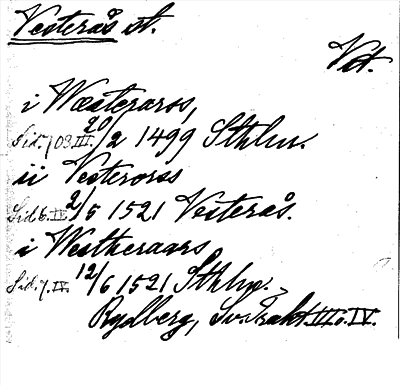 Vesterås st.
Vst.
i Wæsteraros,
Sid. 703.III. 20/2 1499 Sthlm.
ii Vesterorss
Sid 6. IV. 2/5 1521 Vesterås.
i Westheraars
Sid. 7. IV. 12/6 1521 Sthlm.
Rydberg, Sv. Trakt. III o. IV.